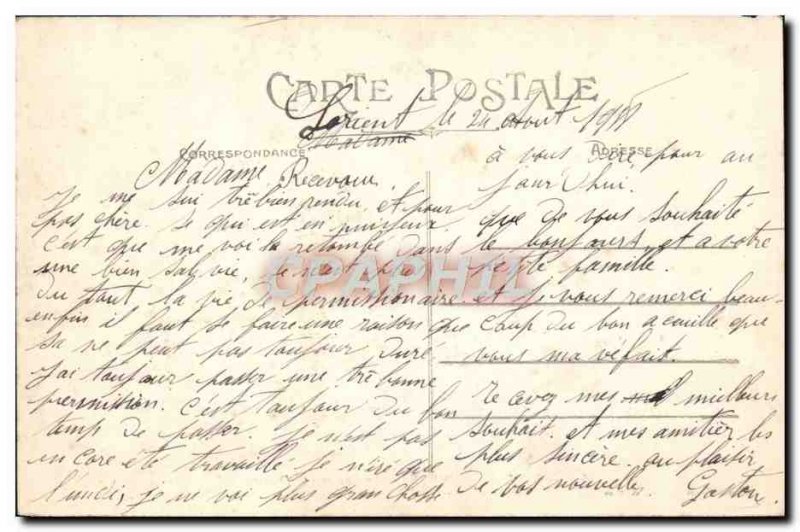 CARTE POSTALE
Lorient le 24 Aout 19
Madame
CORRESPONDANCE
ADRESSE
Madame Receveur
Je me sui trè bien rendu et pour
pas chère. se qui est en
c'est que me voi la retombé dans
une bien sal vie, se n'est
du tout, la vie de permissionaire
enfin il faut se faire une raison que
sa ne peut pas toufour duré
J'ai toufour passer une trè bonne
permission. c'est toufour du bon
temp de passer. Je n'est pas
encore été travaillé je n'iré que
lundi, je ne voi plus gran chosse
à vous dire pour au
jour d'hui.
que de vous souhaité
le bonjours et a votre
petite famille.
et je vous remerci beau-
coup du bon acuille que
vous m'avé fait.
Recevez mes meilleurs
souhait et mes amitier les
plus sincère au plaisir
de vos nouvelles. Gaston
CPAPHIL